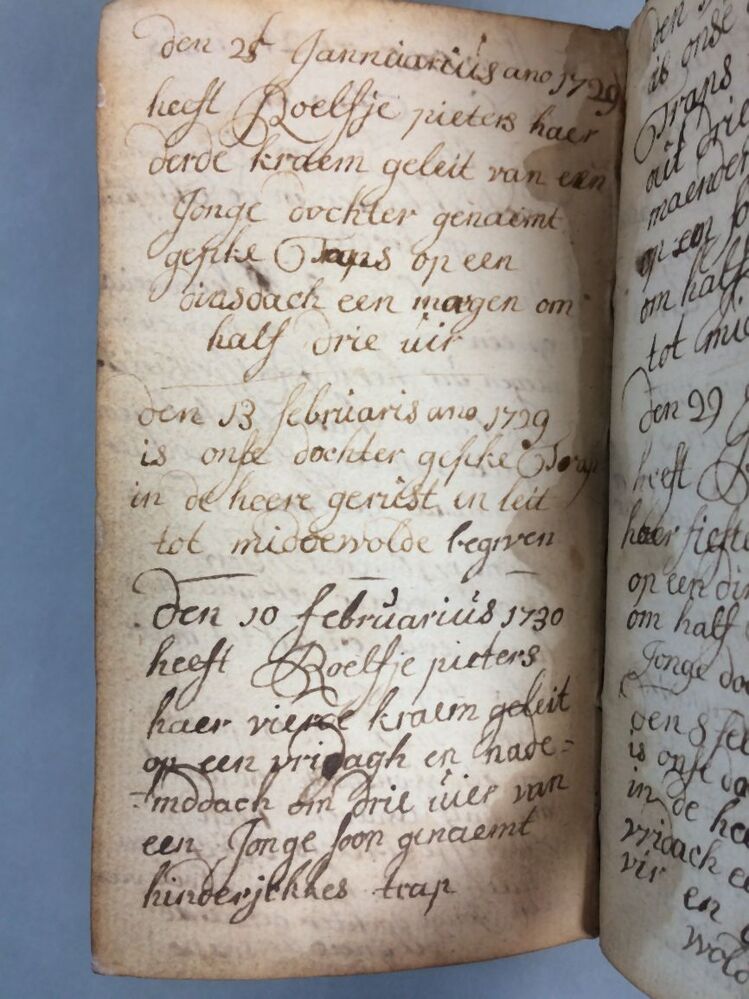 den 25 Jannuarius ano 1729
heeft Roelfje pieters haer
derde kraem geleit van een
Jonge dochter genaemt
gepke Traps op een
dinsdach een morgen om
half drie uir
den 13 februaris ano 1729
is onse dochter gepke Trap
in de heere gerust en leit
tot middewolde begrven
den 10 februarius 1730
heeft Roelfje pieters
haer vierde kraem geleit
op een vridagh en nade=
mddach om drie uier van
een Jonge soon genaemt
hinderjckkes trap
den
is onse
Trans
uit drie
maenden
op een
om half
tot mid
den 29
heeft
haer
op een din
om half
Jonge do
den 8 feb
is onse do
in de hee
vridach ee
vir
en
wold